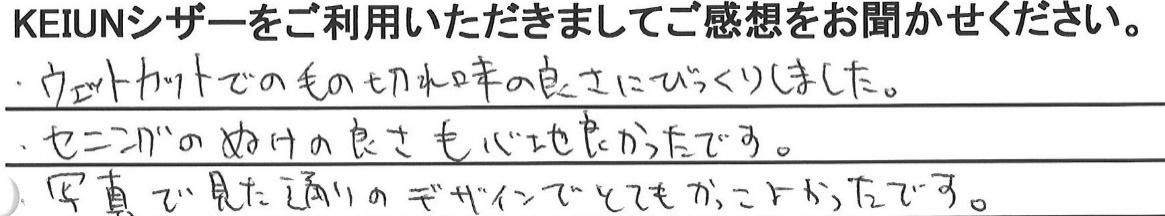 KEIUNシザーをご利用いただきましてご感想をお聞かせください。
・ウェットカットでのもの切れ味の良さにびっくりしました。
・セニングのぬけの良さも心地良かったです。
・写真で見た通りのデザインでとてもかっこよかったです。